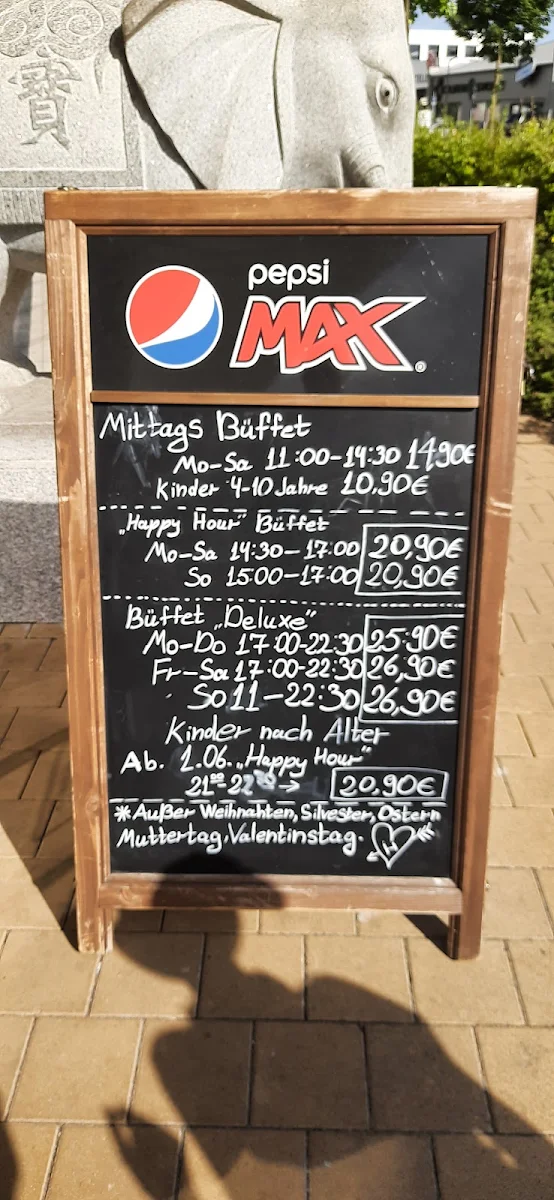 寶
pepsi
MAX®
Mittags Büffet
Mo-Sa 11:00-14:30 14,90€
Kinder 4-10 Jahre 10,90€
„Happy Hour" Büffet
Mo-Sa 14:30-17:00 20,90€
So 15:00-17:00 20,90€
Büffet „Deluxe"
Mo-Do 17:00-22:30 25.90€
Fr-Sa 17:00-22:30 26,90€
So 11-22:30 26,90€
Kinder nach Alter
Ab. 1.06. „Happy Hour"
21⁰⁰-22³⁰ → 20.90€
*Außer Weihnahten, Silvester, Ostern
Muttertag, Valentinstag.